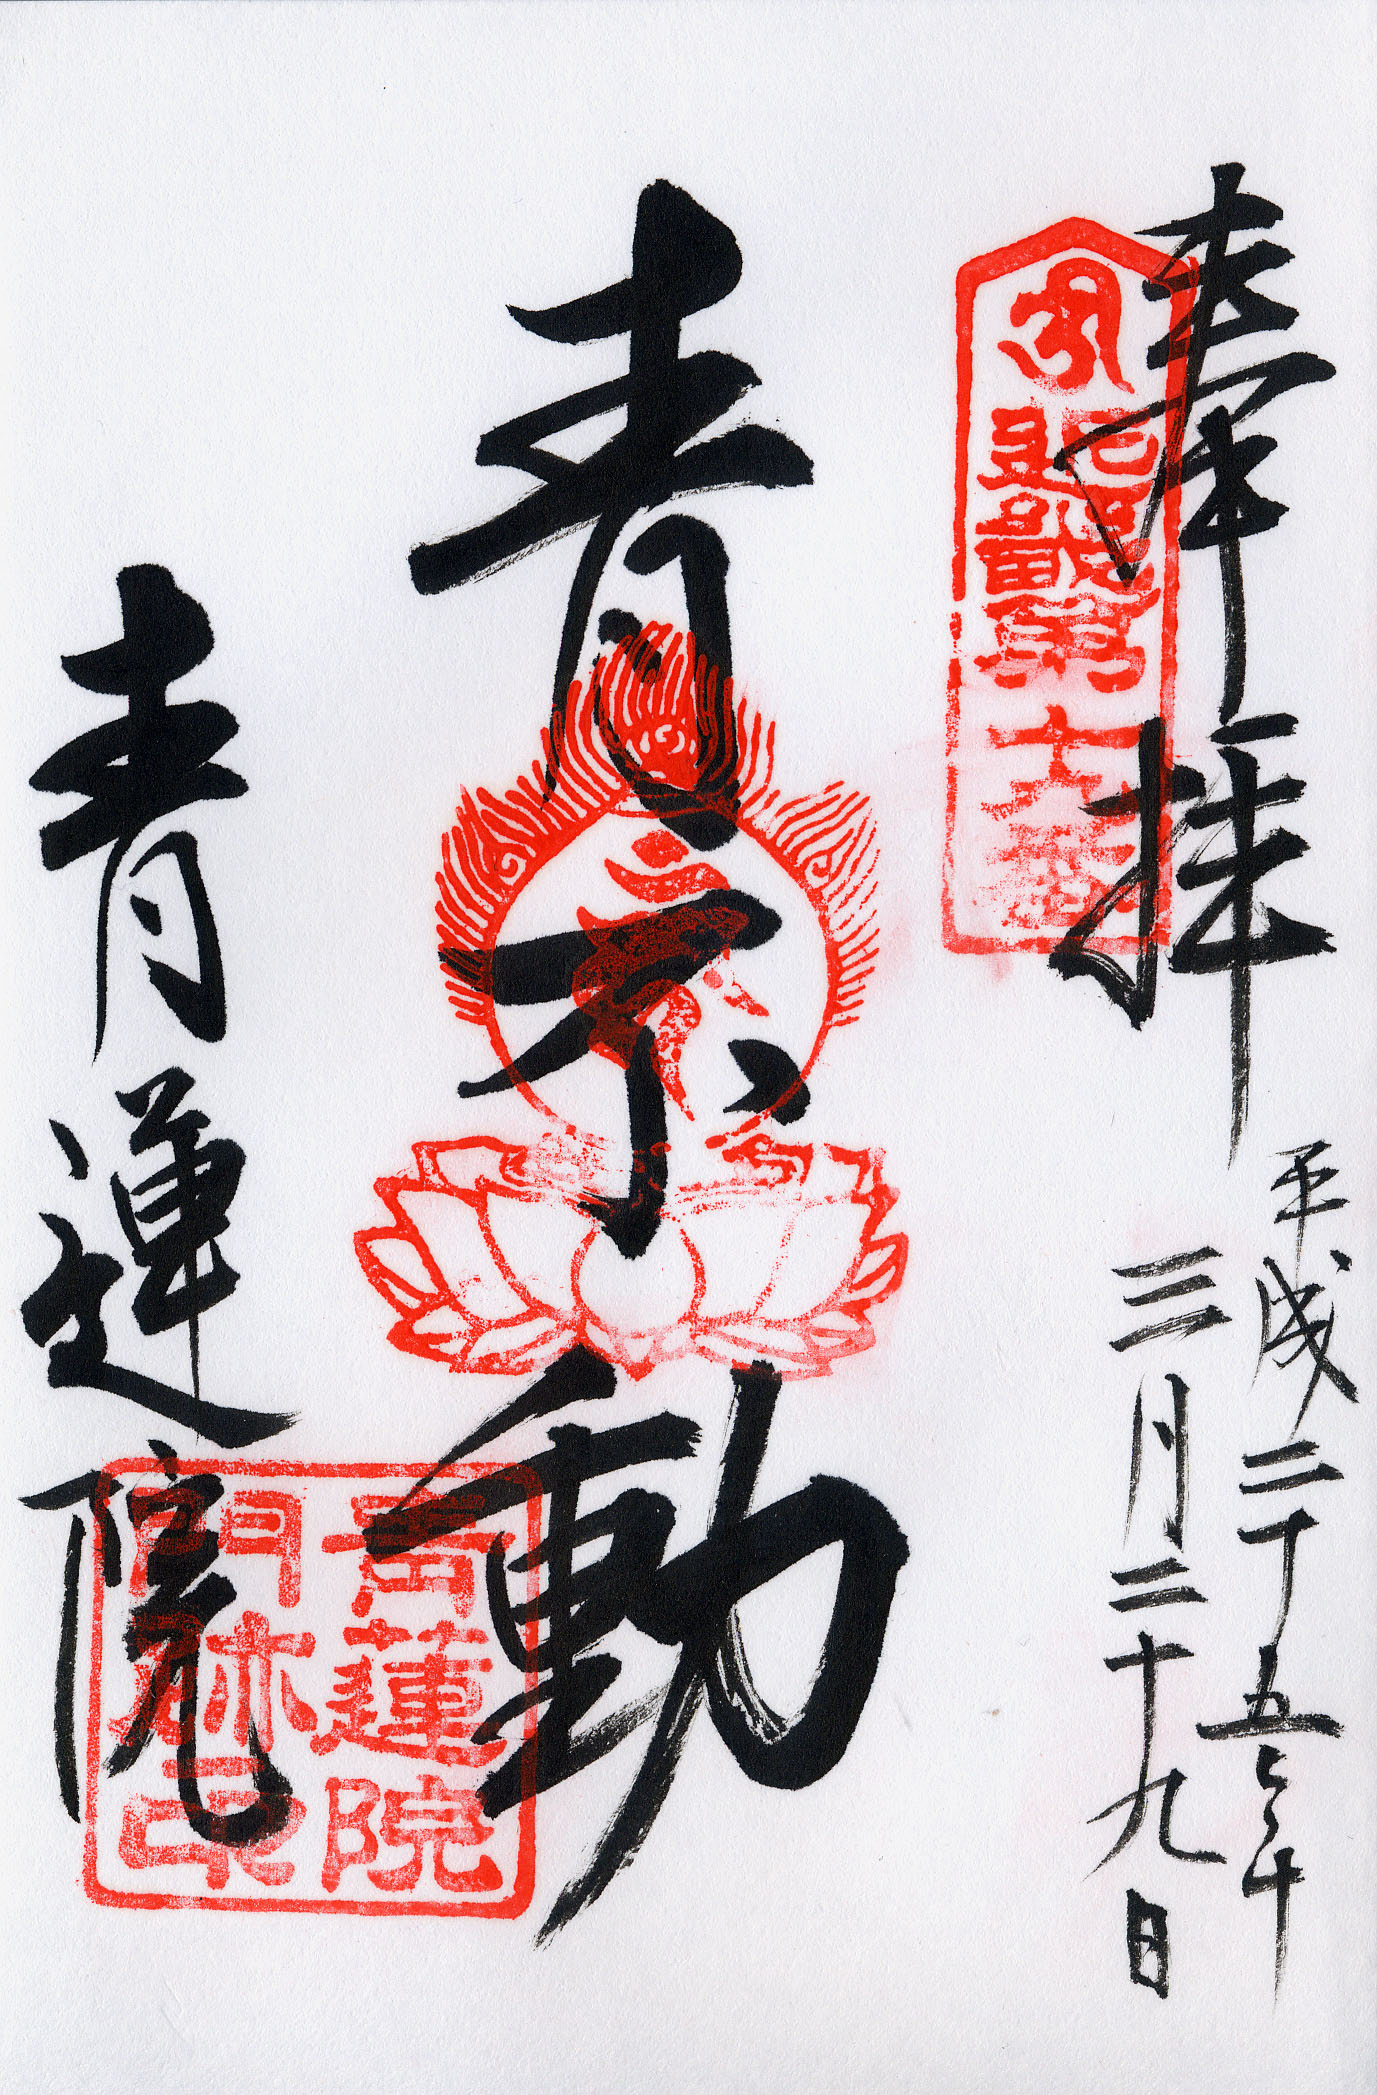 奉拝
平成二十五年
三月二十九日
青不動
青蓮院
近畿
第十九番
青蓮院
門跡印